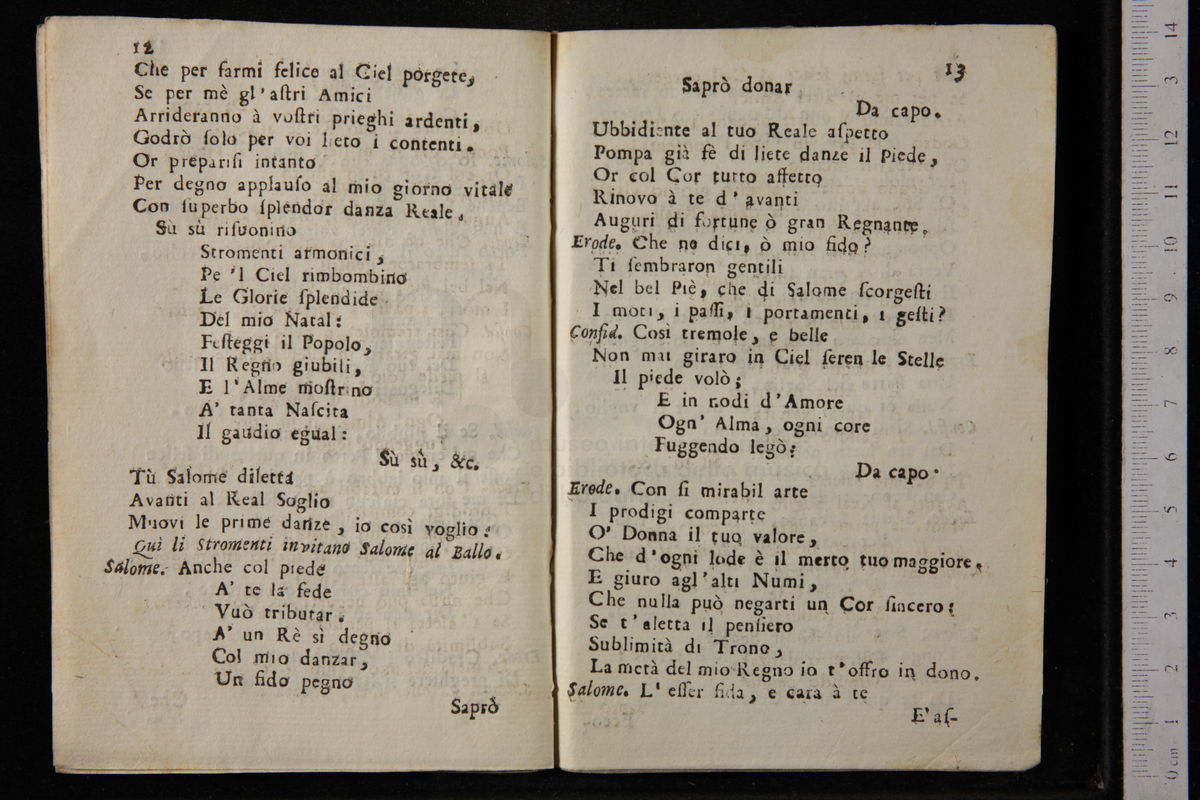 12
Che per farmi felice al Ciel porgete,
Se per mè gl'aſtri Amici
Arrideranno à voſtri prieghi ardenti,
Godrò ſolo per voi lieto i contenti.
Or prepariſi intanto
Per degno applauſo al mio giorno vitale
Con ſuperbo ſplendor danza Reale.
Sù sù riſuonino
Stromenti armonici,
Pe 'l Ciel rimbombino
Le Glorie ſplendide
Del mio Natal:
Feſteggi il Popolo,
Il Regno giubili,
E l'Alme moſtrino
A' tanta Naſcita
Il gaudio egual:
Sù sù, &c.
Tù Salome diletta
Avanti al Real Soglio
Muovi le prime danze, io così voglio:
Quì li Stromenti invitano Salome al Ballo.
Salome. Anche col piede
A' te la fede
Vuò tributar.
A' un Rè sì degno
Col mio danzar,
Un fido pegno
Saprò
13
Saprò donar
Da capo.
Ubbidiente al tuo Reale aſpetto
Pompa già fè di liete danze il Piede,
Or col Cor tutto affetto
Rinovo à te d'avanti
Auguri di fortune ò gran Regnante.
Erode. Che ne dici, ò mio fido?
Ti ſembraron gentili
Nel bel Piè, che di Salome ſcorgeſti
I moti, i paſſi, i portamenti, i geſti?
Confid. Così tremole, e belle
Non mai giraro in Ciel ſeren le Stelle
Il piede volò;
E in nodi d'Amore
Ogn' Alma, ogni core
Fuggendo legò:
Da capo.
Erode. Con ſi mirabil arte
I prodigi comparte
O' Donna il tuo valore,
Che d'ogni lode è il merto tuo maggiore.
E giuro agl'alti Numi,
Che nulla può negarti un Cor ſincero:
Se t'aletta il penſiero
Sublimità di Trono,
La metà del mio Regno io t'offro in dono.
Salome. L' eſſer fida, e cara à te
E' aſ-